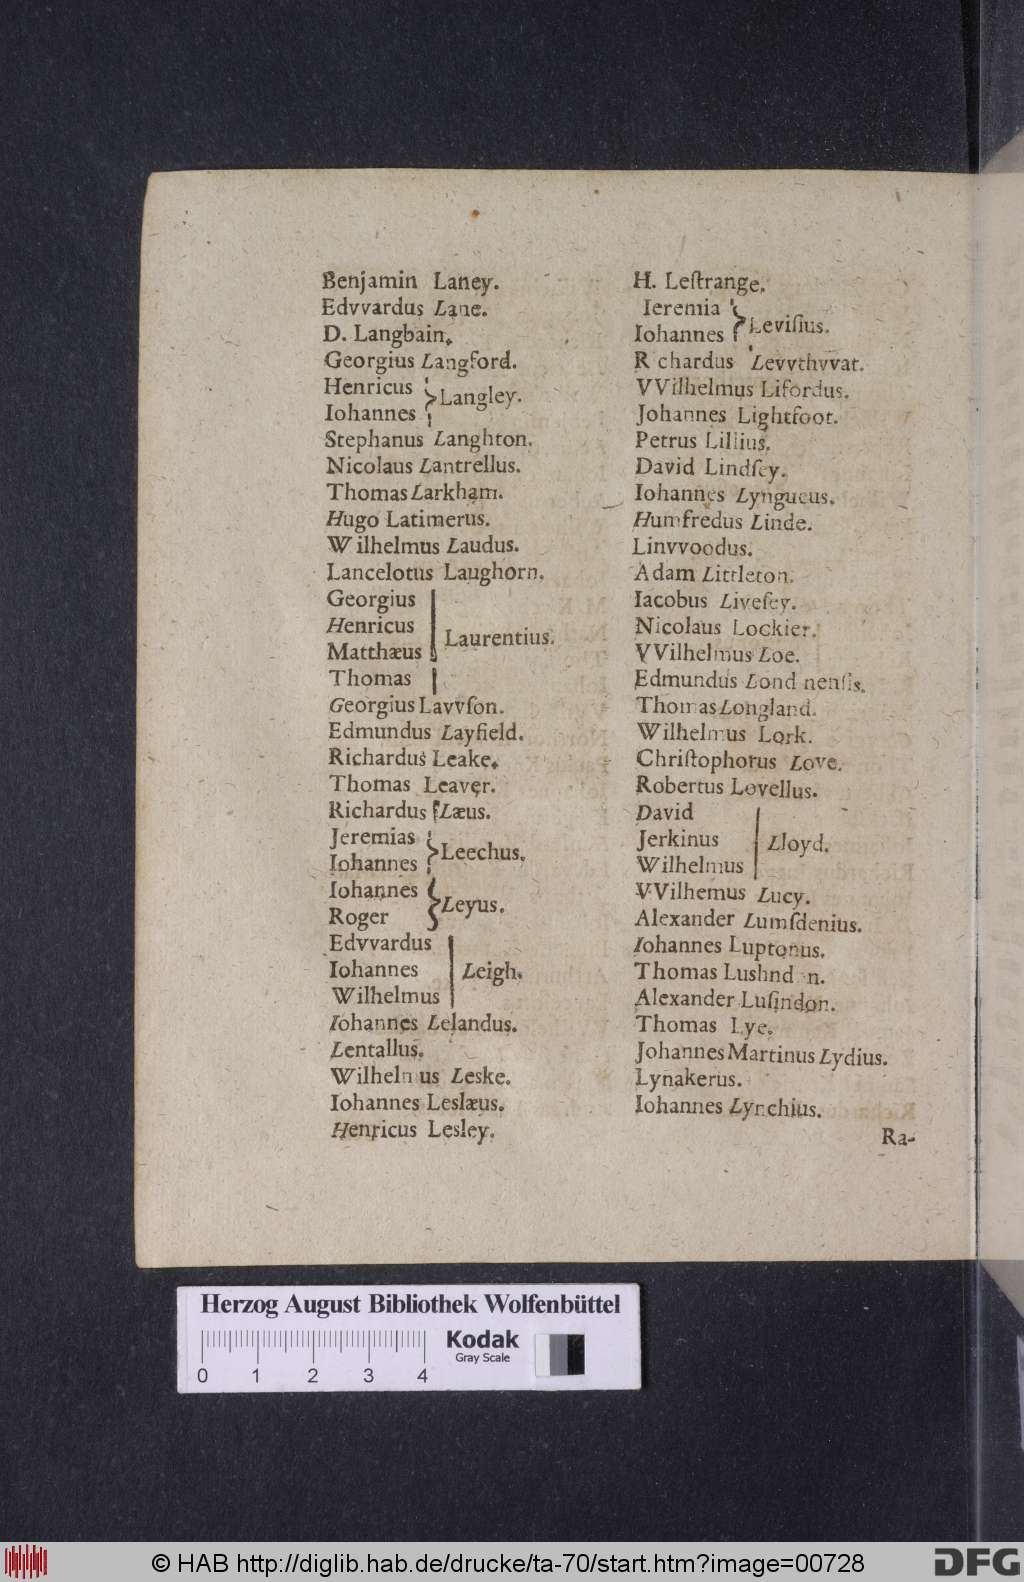 Benjamin Laney.
Edvvardus Lane.
D. Langbain.
Georgius Langford.
Henricus
Iohannes } Langley.
Stephanus Langhton.
Nicolaus Lantrellus.
Thomas Larkham.
Hugo Latimerus.
Wilhelmus Laudus.
Lancelotus Laughorn.
Georgius
Henricus
Matthæus
Thomas
Laurentius.
Georgius Lavvſon.
Edmundus Layfield.
Richardus Leake.
Thomas Leaver.
Richardus Læus.
Jeremias
Iohannes } Leechus.
Iohannes
Roger } Leyus.
Edvvardus
Iohannes
Wilhelmus
Leigh.
Iohannes Lelandus.
Lentallus.
Wilheln us Leske.
Iohannes Leslæus.
Henricus Lesley.
H. Leſtrange.
Ieremia
Iohannes } Leviſius.
R chardus Levvthvvat.
VVilhelmus Lifordus.
Johannes Lightfoot.
Petrus Lillius.
David Lindſey.
Iohannes Lyngueus.
Humfredus Linde.
Linvvoodus.
Adam Littleton.
Iacobus Liveſey.
Nicolaus Lockier.
VVilhelmus Loe.
Edmundus Lond nenſis.
Thomas Longland.
Wilhelmus Lork.
Chriſtophorus Love.
Robertus Lovellus.
David
Jerkinus
Wilhelmus
Lloyd.
VVilhemus Lucy.
Alexander Lumſdenius.
Iohannes Luptonus.
Thomas Lushnd n.
Alexander Luſindon.
Thomas Lye.
Johannes Martinus Lydius.
Lynakerus.
Iohannes Lynchius.
Ra-
Herzog August Bibliothek Wolfenbüttel
Kodak
Gray Scale
0 1 2 3 4
© HAB http://diglib.hab.de/drucke/ta-70/start.htm?image=00728
DFG